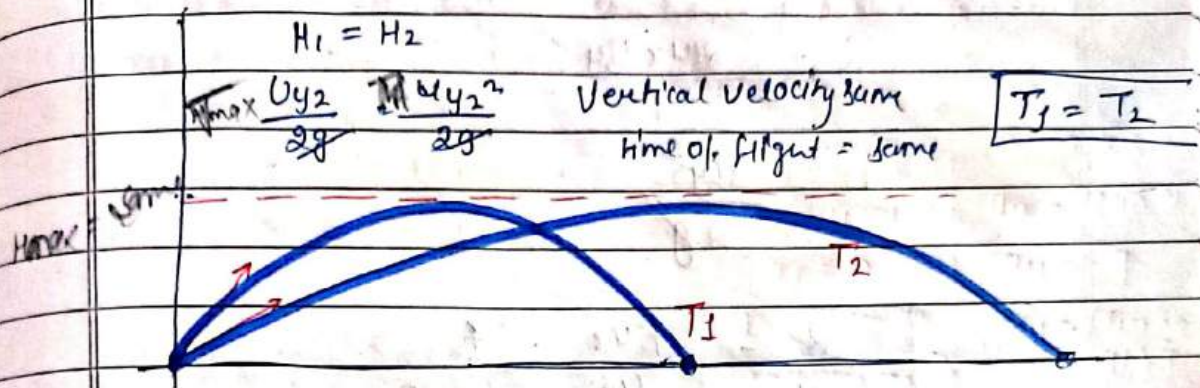 H₁ = H₂
Hmax Uy2/2g Uy₂²/2g Vertical velocity same T₁ = T₂
time of flight = same
Hmax = same
T₂
T₁